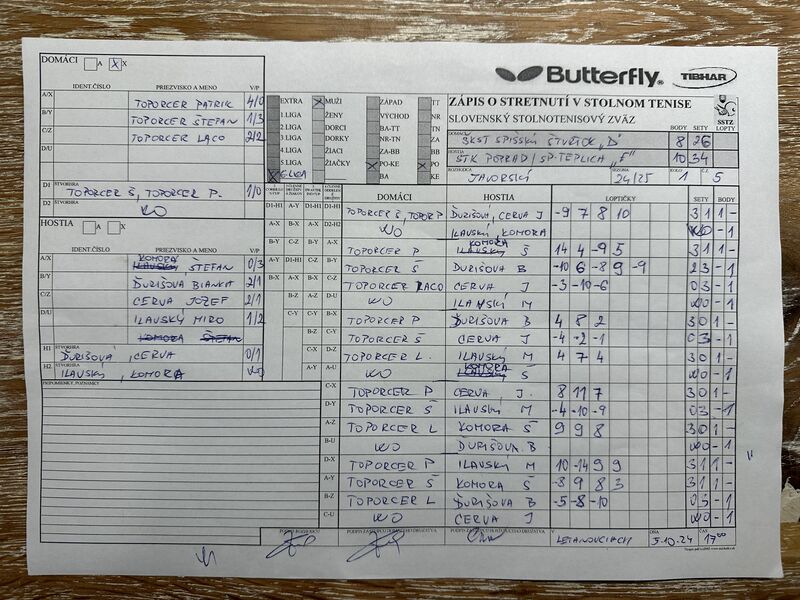 DOMÁCI A X X
IDENT.ČÍSLO PRIEZVISKO A MENO V/P
A/X TOPORCER PATRIK 4/0
B/Y TOPORCER ŠTEFAN 1/3
C/Z TOPORCER LACO 2/2
D/U
D1 ŠTVORHRA TOPORCER Š, TOPORCER P. 1/0
D2 WO
HOSTIA A X
IDENT.ČÍSLO PRIEZVISKO A MENO V/P
A/X KOMORA ŠTEFAN 0/3
B/Y ĎURIŠOVA BIANKA 2/1
C/Z CERVA JOZEF 2/1
D/U ILAVSKÝ MIRO 1/2
KOMORA ŠTEFAN
H1 ŠTVORHRA ĎURIŠOVÁ, CERVA 0/1
H2 ILAVSKÝ, KOMORA WO
PRIPOMIENKY, POZNÁMKY
Butterfly TIBHAR
EXTRA X MUŽI ZÁPAD TT
1.LIGA ŽENY VÝCHOD NR
2.LIGA DORCI BA-TT TN
3.LIGA DORKY NR-TN ZA
4.LIGA ŽIACI ZA-BB BB
5.LIGA ŽIAČKY PO-KE PO
6.LIGA BA KE
ZÁPIS O STRETNUTÍ V STOLNOM TENISE
SLOVENSKÝ STOLNOTENISOVÝ ZVÄZ
SSTZ
BODY SETY LOPTY
DOMÁCI ŠKST SPIŠSKÝ ŠTVRTOK „D" 8 26
HOSTIA STK POPRAD/SP.TEPLICA „F" 10 34
ROZHODCA JAVORSKÝ SEZÓNA 24/25 KOLO 1 Č.Z. 5
DOMÁCI HOSTIA LOPTIČKY SETY BODY
D1-H1 TOPORCER Š, TOPOR P ĎURIŠOVÁ, CERVA J -9 7 8 10 3 1 1 -
D2-H2 WO ILAVSKÝ KOMORA WO - 1
A-X TOPORCER P KOMORA Š 14 4 -9 5 3 1 1 -
B-Y TOPORCER Š ĎURIŠOVA B -10 6 -8 9 -9 2 3 - 1
C-Z TOPORCER LACO CERVA J -3 -10 -6 0 3 - 1
D-U WO ILAVSKÝ M WO - 1
TOPORCER P ĎURIŠOVA B 4 8 2 3 0 1 -
TOPORCER Š CERVA J -4 -2 -1 0 3 - 1
TOPORCER L. ILAVSKÝ M 4 7 4 3 0 1 -
WO KOMORA Š WO - 1
C-X TOPORCER P CERVA J. 8 11 7 3 0 1 -
D-Y TOPORCER Š ILAVSKÝ M -4 -10 -9 0 3 - 1
A-Z TOPORCER L KOMORA Š 9 9 8 3 0 1 -
B-U WO ĎURIŠOVA B WO - 1
D-X TOPORCER P ILAVSKÝ M 10 -14 9 9 3 1 1 -
A-Y TOPORCER Š KOMORA Š -8 9 8 3 3 1 1 -
B-Z TOPORCER L ĎURIŠOVA B -5 -8 -10 0 3 - 1
C-U WO CERVA J WO - 1
PODPIS ROZHODCU PODPIS ZÁSTUPCU DOMÁCEHO DRUŽSTVA PODPIS ZÁSTUPCU HOSŤUJÚCEHO DRUŽSTVA V LETANOVCIACH DŇA 5.10.24 ČAS 17⁰⁰